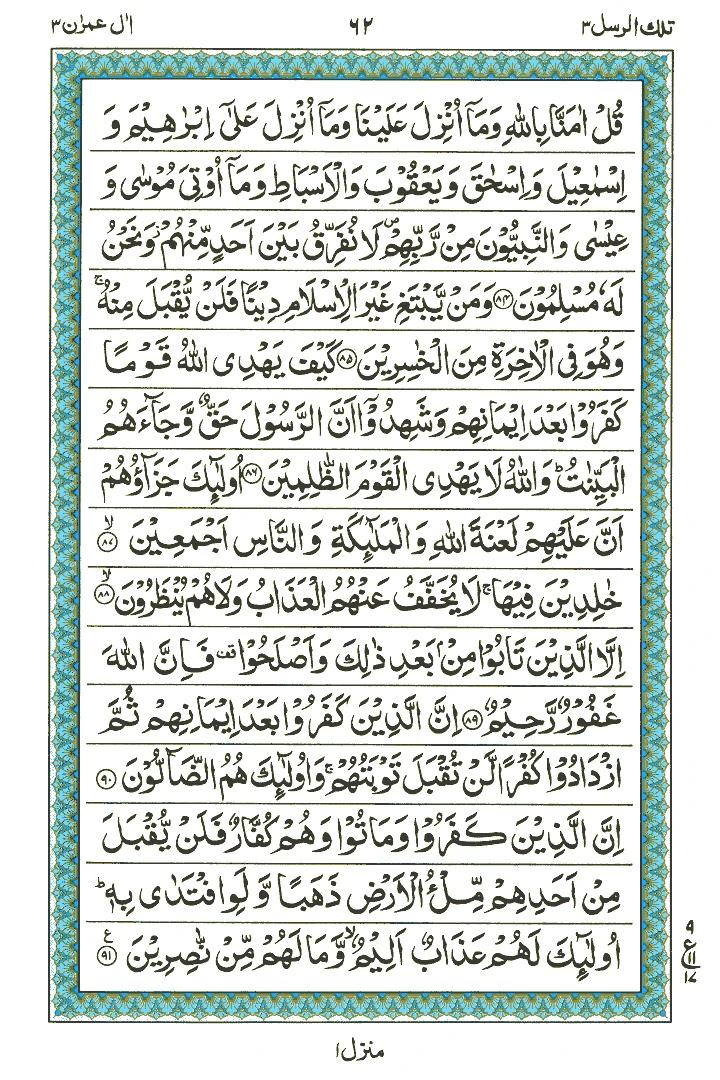 تلك الرسل ٣
٦٢
اٰل عمرٰن ٣
قُلْ اٰمَنَّا بِاللّٰهِ وَمَاۤ اُنْزِلَ عَلَيْنَا وَمَاۤ اُنْزِلَ عَلٰۤى اِبْرٰهِيْمَ وَ
اِسْمٰعِيْلَ وَاِسْحٰقَ وَيَعْقُوْبَ وَالْاَسْبَاطِ وَمَاۤ اُوْتِىَ مُوْسٰى وَ
عِيْسٰى وَالنَّبِيُّوْنَ مِنْ رَّبِّهِمْ ۪ لَا نُفَرِّقُ بَيْنَ اَحَدٍ مِّنْهُمْ ۡ وَنَحْنُ
لَهٗ مُسْلِمُوْنَ ﴿٨٤﴾ وَمَنْ يَّبْتَغِ غَيْرَ الْاِسْلَامِ دِيْنًا فَلَنْ يُّقْبَلَ مِنْهُ ۚ
وَهُوَ فِى الْاٰخِرَةِ مِنَ الْخٰسِرِيْنَ ﴿٨٥﴾ كَيْفَ يَهْدِى اللّٰهُ قَوْمًا
كَفَرُوْا بَعْدَ اِيْمَانِهِمْ وَشَهِدُوْۤا اَنَّ الرَّسُوْلَ حَقٌّ وَّجَآءَهُمُ
الْبَيِّنٰتُ ؕ وَاللّٰهُ لَا يَهْدِى الْقَوْمَ الظّٰلِمِيْنَ ﴿٨٦﴾ اُولٰٓئِكَ جَزَآؤُهُمْ
اَنَّ عَلَيْهِمْ لَعْنَةَ اللّٰهِ وَالْمَلٰٓئِكَةِ وَالنَّاسِ اَجْمَعِيْنَ ۙ ﴿٨٧﴾
خٰلِدِيْنَ فِيْهَا ۚ لَا يُخَفَّفُ عَنْهُمُ الْعَذَابُ وَلَا هُمْ يُنْظَرُوْنَ ۙ ﴿٨٨﴾
اِلَّا الَّذِيْنَ تَابُوْا مِنْۢ بَعْدِ ذٰلِكَ وَاَصْلَحُوْا ۟ قف فَاِنَّ اللّٰهَ
غَفُوْرٌ رَّحِيْمٌ ﴿٨٩﴾ اِنَّ الَّذِيْنَ كَفَرُوْا بَعْدَ اِيْمَانِهِمْ ثُمَّ
ازْدَادُوْا كُفْرًا لَّنْ تُقْبَلَ تَوْبَتُهُمْ ۚ وَاُولٰٓئِكَ هُمُ الضَّآلُّوْنَ ﴿٩٠﴾
اِنَّ الَّذِيْنَ كَفَرُوْا وَمَاتُوْا وَهُمْ كُفَّارٌ فَلَنْ يُّقْبَلَ
مِنْ اَحَدِهِمْ مِّلْءُ الْاَرْضِ ذَهَبًا وَّلَوِ افْتَدٰى بِهٖ ؕ
اُولٰٓئِكَ لَهُمْ عَذَابٌ اَلِيْمٌ ۙ وَّمَا لَهُمْ مِّنْ نّٰصِرِيْنَ ﴿٩١﴾ ع
٩
ع
١١
١٧
منزل ١